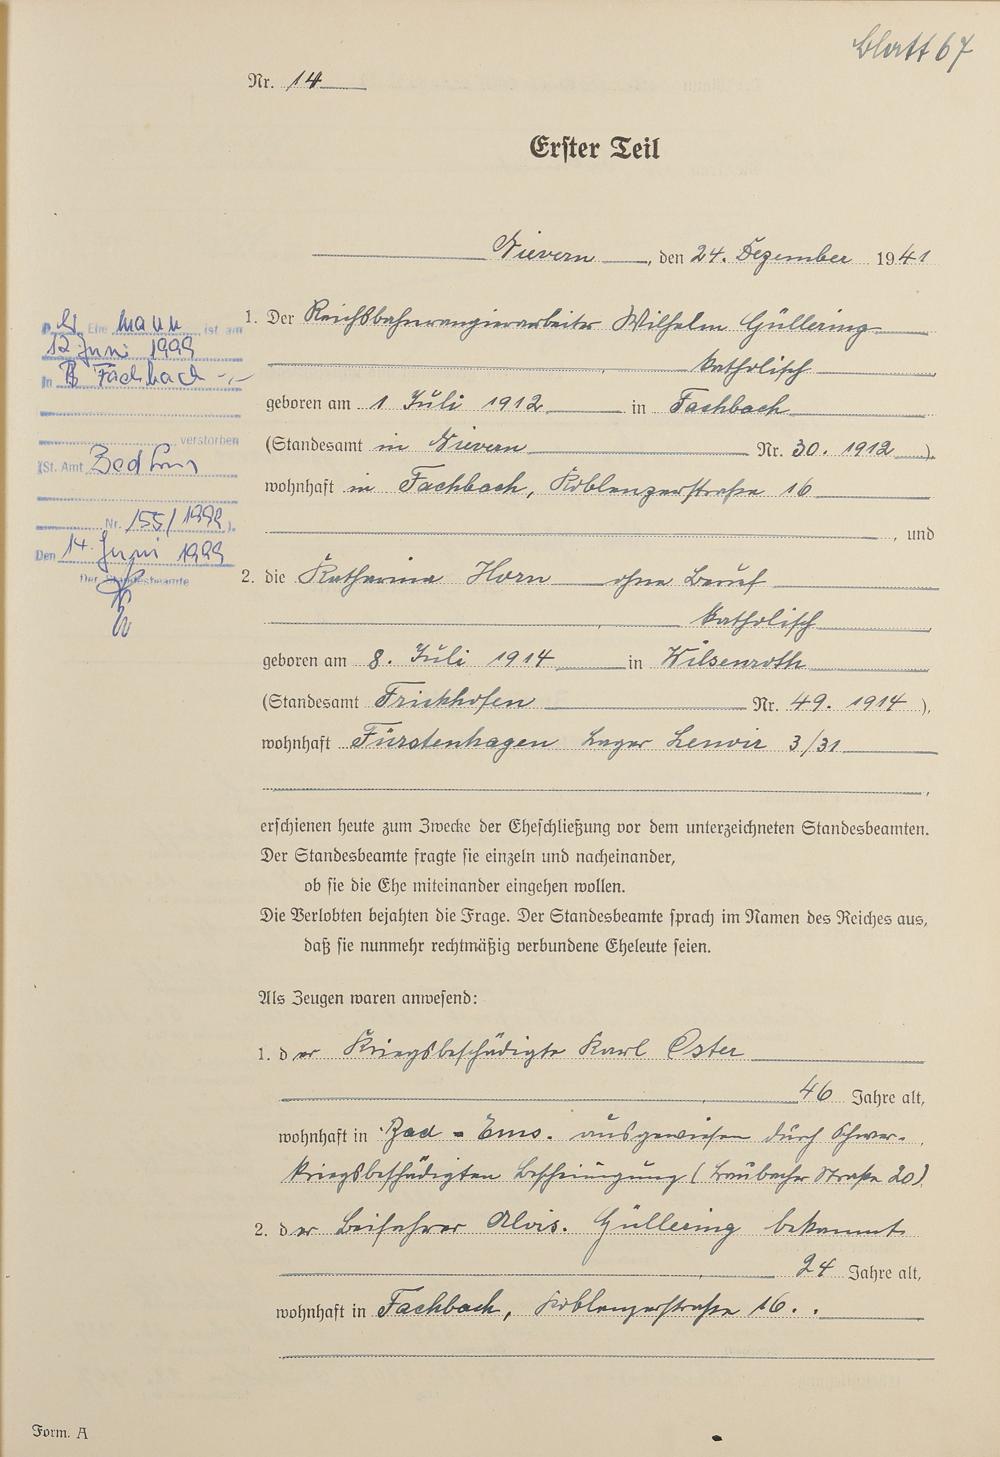 blatt 67
Nr. 14
Erster Teil
Nievern, den 24. Dezember 1941
1. Der Reichsbahnrangierarbeiter Wilhelm Güllering
katholisch
geboren am 1 Juli 1912 in Fachbach
(Standesamt in Nievern Nr. 30. 1912).
wohnhaft in Fachbach, Koblenzerstraße 16
, und
2. die Katharina Horn ohne Beruf
katholisch
geboren am 8. Juli 1914 in Wilsenroth
(Standesamt Frickhofen Nr. 49. 1914),
wohnhaft Fürstenhagen Lager Lenoir 3/31
,
erschienen heute zum Zwecke der Eheschließung vor dem unterzeichneten Standesbeamten.
Der Standesbeamte fragte sie einzeln und nacheinander,
ob sie die Ehe miteinander eingehen wollen.
Die Verlobten bejahten die Frage. Der Standesbeamte sprach im Namen des Reiches aus,
daß sie nunmehr rechtmäßig verbundene Eheleute seien.
Als Zeugen waren anwesend:
1. der Kriegsbeschädigte Karl Oster
46 Jahre alt,
wohnhaft in Bad-Ems. ausgewiesen durch Schwer-
kriegsbeschädigten Bescheinigung (Braubacher Straße 20)
2. der Beifahrer Alois. Güllering bekannt
24 Jahre alt,
wohnhaft in Fachbach, Koblenzerstraße 16..
Form. A
D er Ehe mann ist am
12. Juni 1999
in Fachbach -,-
verstorben
(St. Amt Bad Ems
Nr. 155/1999).
Den 14. Juni 1999
Der Standesbeamte